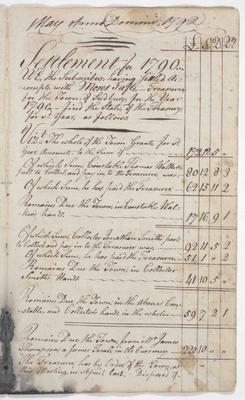 May Anno Domini 1792
£ S D Qr
Settlement for 1790
WE the Subscribers, having settled Ac-
compts with Moses Treasurer
for the Town of Sudbury, for the Year
1790, find the State of the Treasury,
for sd. Year, as follows
Vizt. The whole of the Town Grants for sd.
Year Amounts to the Sum of 173 5
Of which Sum, Constable Thomas Walker
part to Collect, and pay in to the Treasurer, was 80 12 8 3
Of which Sum, he has paid the Treasurer 62 15 11 2
Remains Due the Town, in Constable Wal-
kers hands 17 16 9 1
Of which Sum, Collector Jonathan Smiths, part
to Collect, and pay in to the Treasurer was 92 11 5 2
Of which Sum, he has paid the Treasurer 51 1 2
Remains Due the Town, in Collector
Smiths Hands 41 10 5
Remains Due the Town, in the Above Con-
stable, and Collectors hands in the whole 59 7 2 1
Remains Due the Town, from Mr. James
Thompson, a James Trask in the
The Treasurer, has by Order of the Town, at
their Meeting in April last, Disposed of